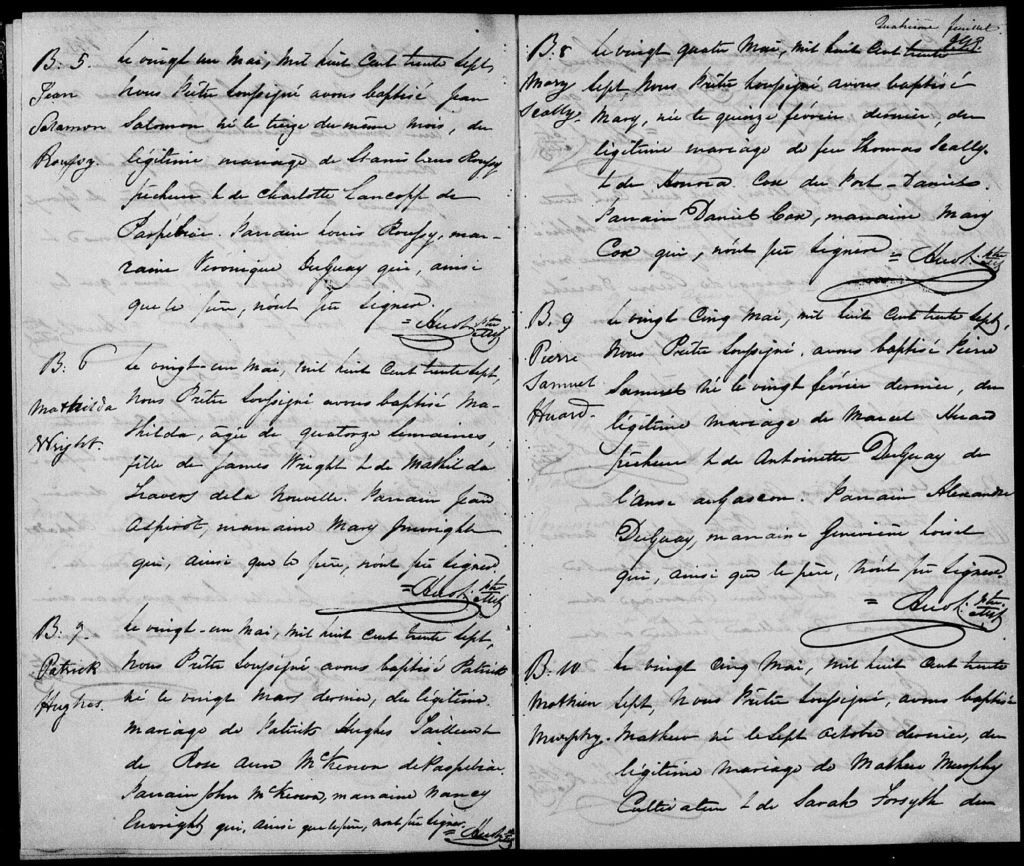 B. 5.
Jean
Salamon
Roussy.
Le vingt un Mai, mil huit Cent trente sept,
Nous Prêtre Soussigné avons baptisé Jean
Salomon né le treize du même mois, du
légitime mariage de Stanislaus Roussy
pêcheur & de Charlotte Lancopp de
Paspébiac. Parrain Louis Roussy, mar-
raine Véronique DuGuay qui, ainsi
que le père, n'ont pu signer.
= Huot. Ptre
B. 6
Mathilda
Wright.
Le vingt-un Mai, mil huit Cent trente sept,
Nous Prêtre Soussigné avons baptisé Ma-
thilda, âgée de quatorze semaines,
fille de James Wright & de Mathilda
Travers de la Nouvelle. Parrain Jean
Aspirot, marraine Mary
qui, ainsi que le père, n'ont pu signer.
= Huot. Ptre
B. 7.
Patrick
Hughes.
Le vingt-un Mai, mil huit Cent trente sept,
Nous Prêtre Soussigné avons baptisé Patrick
né le vingt Mars dernier, du légitime
mariage de Patrick Hughes Tailleur &
de Rose Ann McKernon de Paspébiac.
Parrain John McKernon, marraine Nancy
Enwright qui, ainsi que le père, n'ont pu signer.
= Huot. Ptre
Quatrième feuillet.
B. 8
Mary
Scally.
Le vingt quatre Mai, mil huit Cent trente
sept, Nous Prêtre Soussigné avons baptisé
Mary, née le quinze février dernier, du
légitime mariage de feu Thomas Scally
& de Honora Cox du Port-Daniel.
Parrain Daniel Cox, marraine Mary
Cox qui, n'ont pu signer = Huot. Ptre
B. 9
Pierre
Samuel
Huard.
Le vingt Cinq Mai, mil huit Cent trente sept,
Nous Prêtre Soussigné, avons baptisé Pierre
Samuel né le vingt février dernier, du
légitime mariage de Marcel Huard
pêcheur & de Antoinette DuGuay de
l'Anse au Gascon. Parrain Alexandre
DuGuay, marraine Geneviève Loisel
qui, ainsi que le père, n'ont pu signer.
= Huot. Ptre
B. 10
Mathieu
Murphy.
Le vingt Cinq Mai, mil huit Cent trente
sept, Nous Prêtre Soussigné, avons baptisé
Mathew né le sept Octobre dernier, du
légitime mariage de Mathew Murphy
Cultivateur & de Sarah Forsyth du